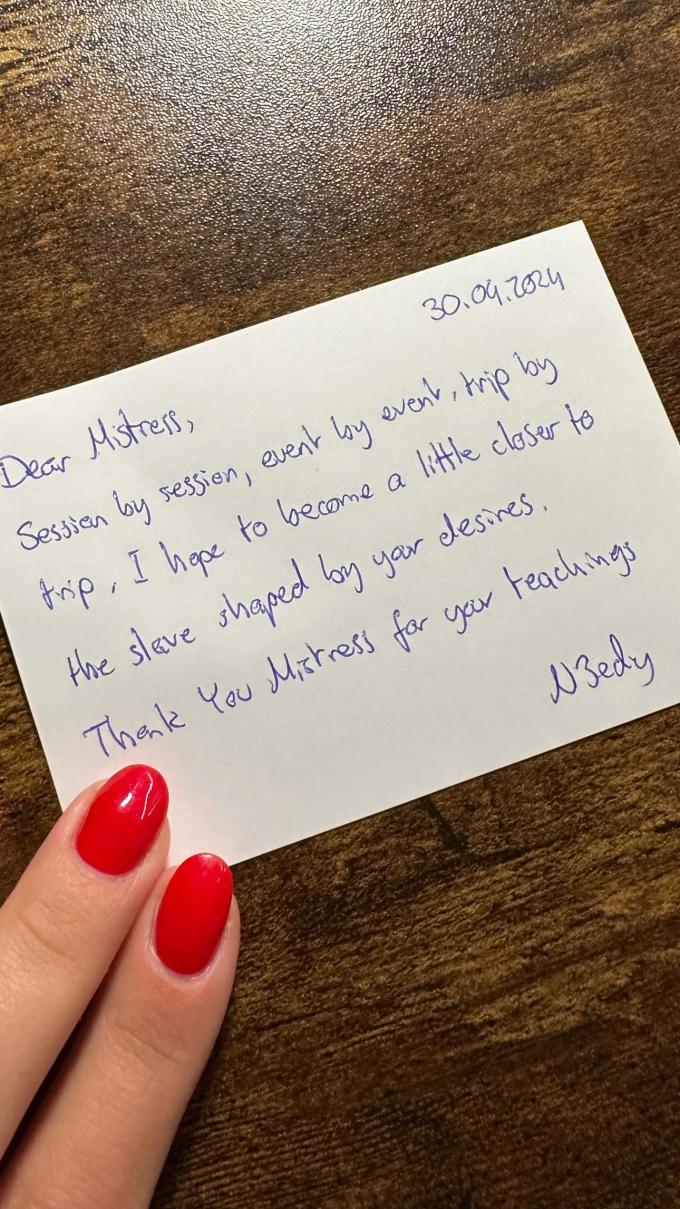 30.04.2024
Dear Mistress,
Session by session, event by event, trip by
trip, I hope to become a little closer to
the slave shaped by your desires.
Thank You Mistress for your teachings
N3edy